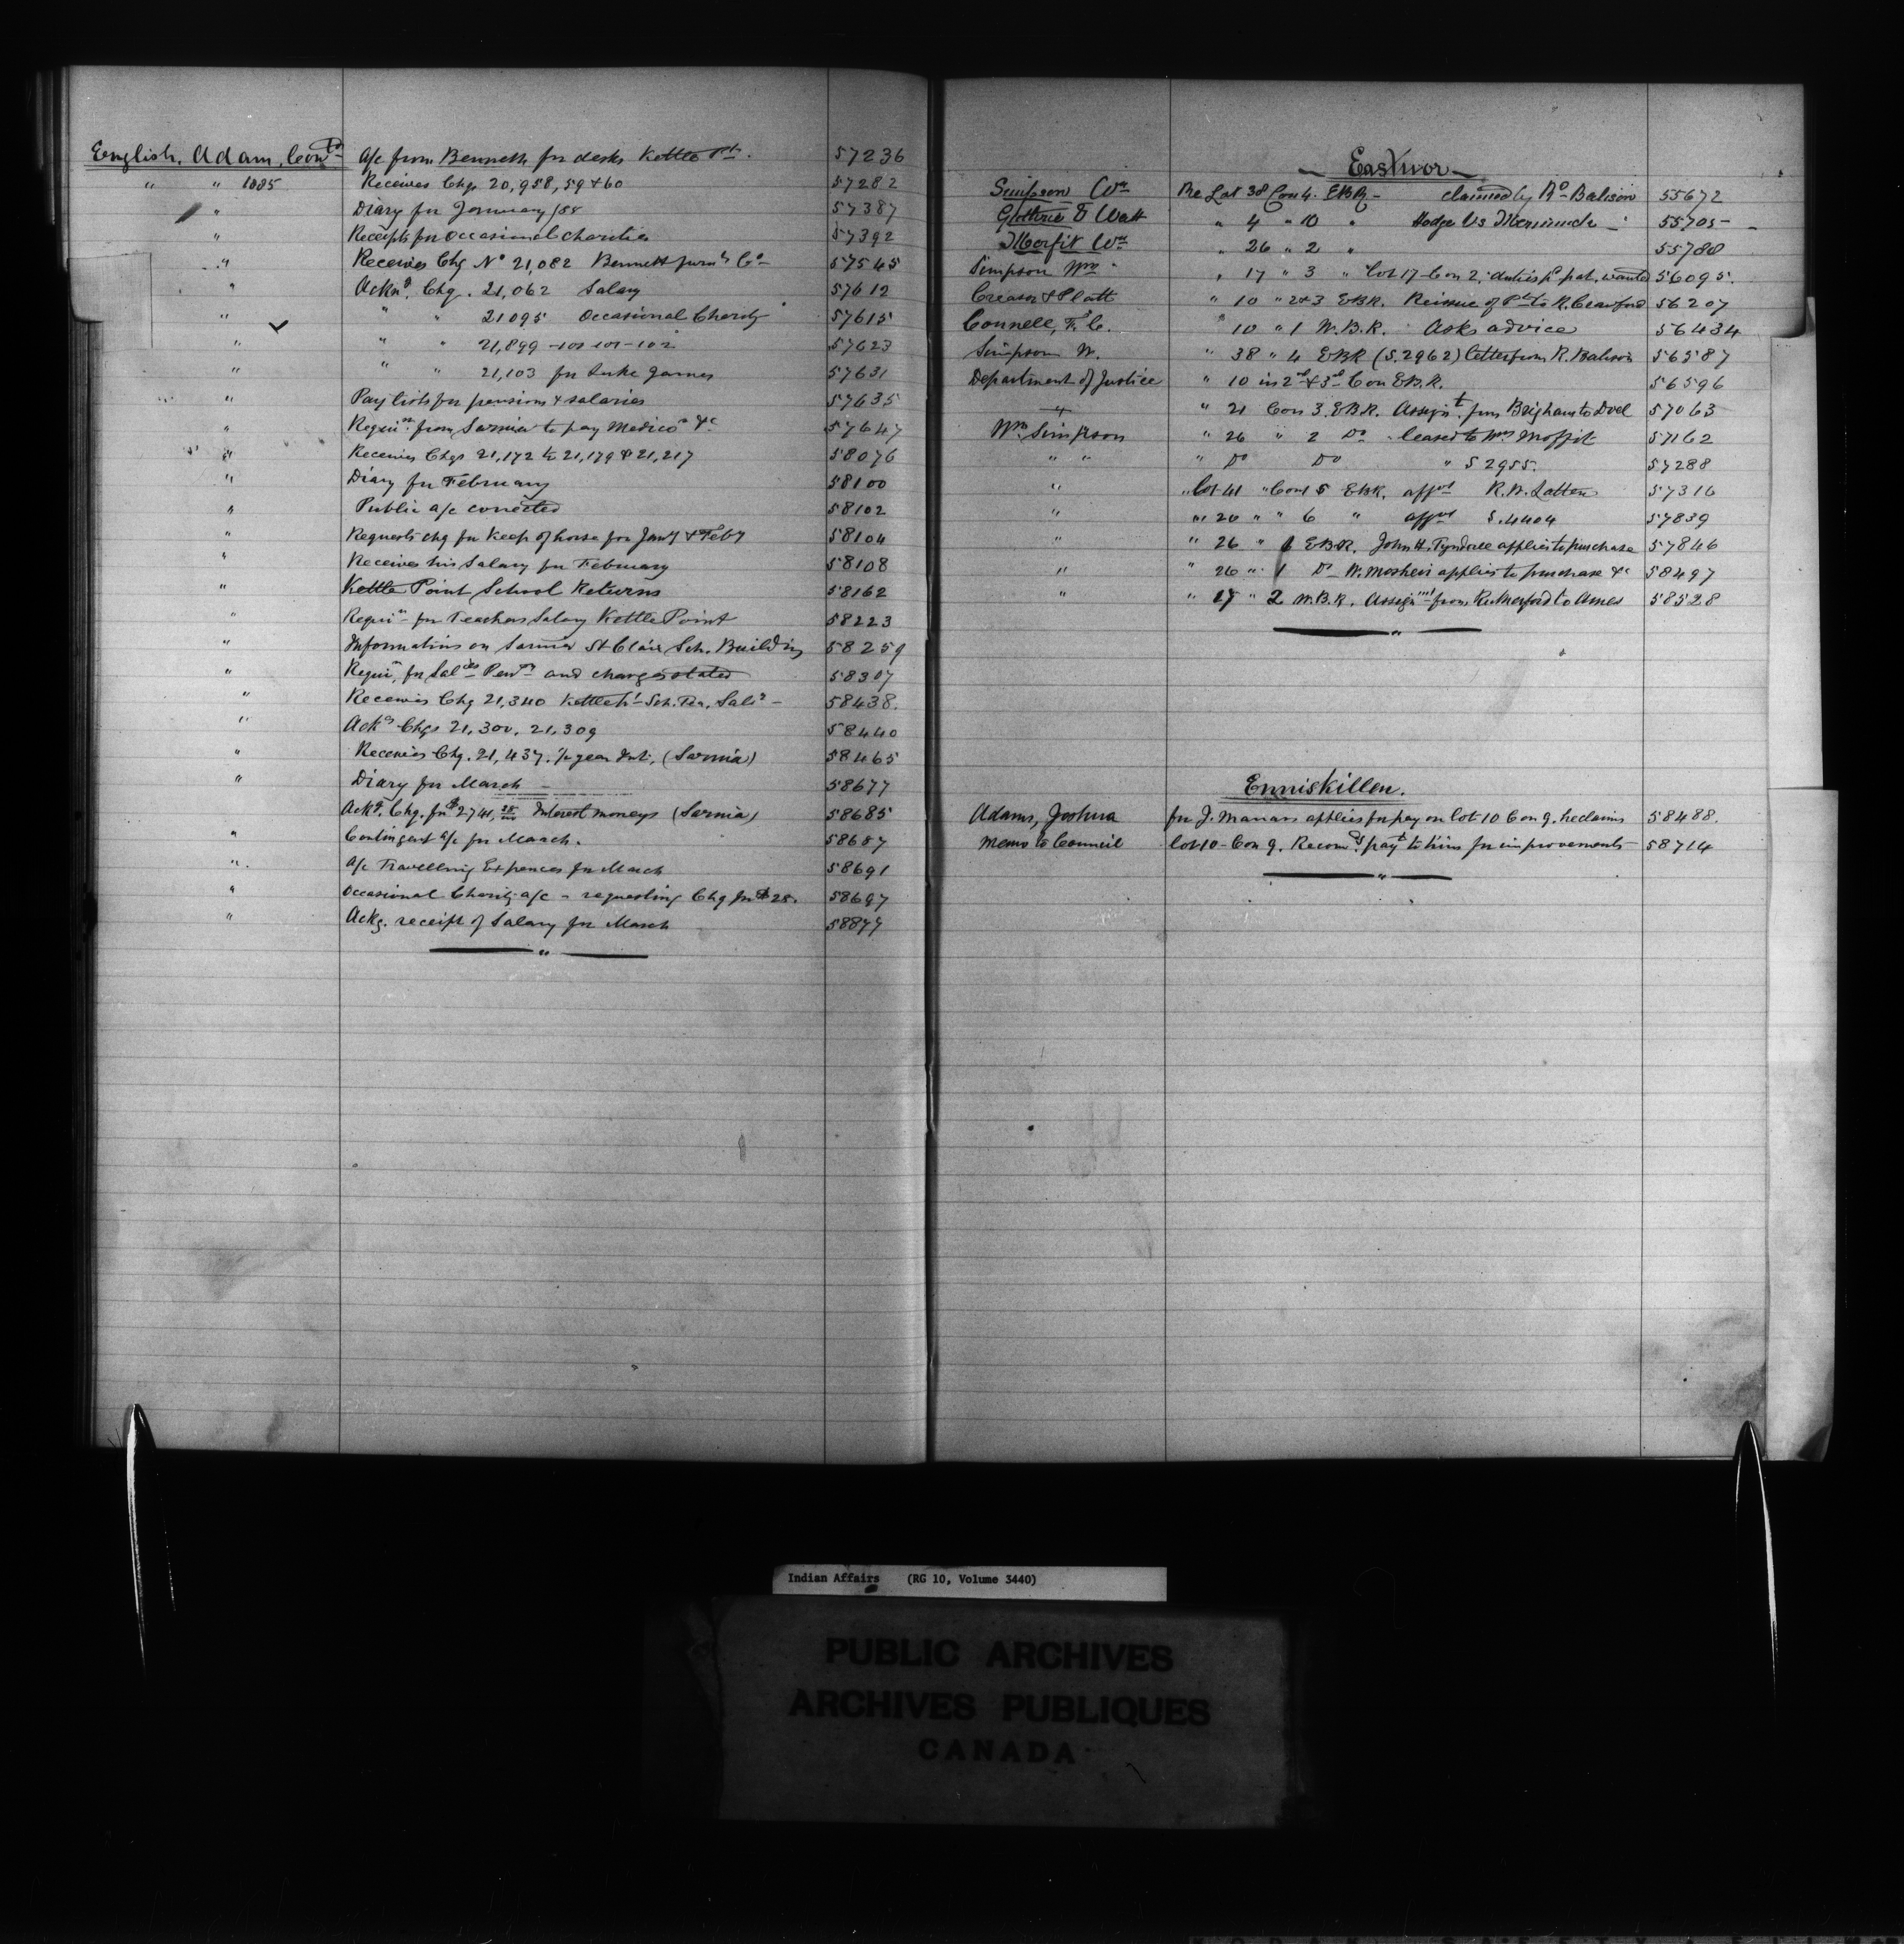 English, Adam, Contd A/c from Bennett for desks Kettle Pt. 57236
" " 1885 Receives Chqs 20,958, 59 & 60 57282
" Diary for January /85 57387
" Receipts for occasional charities 57392
" Receives Chq No 21,082 Bennett furng Co 57545
" Acknd. Chq. 21,062 Salary 57612
" " " 21095 Occasional Charity 57615
" " " 21,899 -101-102 57623
" " " 21,103 for Luke James 57631
" Pay lists for pensions & salaries 57635
" Requin. from Sarnia to pay Medico &c 57647
" Receives Chqs 21,172 to 21,179 & 21,217 58076
" Diary for February 58100
" Public a/c corrected 58102
" Requests chq for keep of horse for Jany & Feby 58104
" Receives his Salary for February 58108
" Kettle Point School Returns 58162
" Requin for Teachers Salary Kettle Point 58223
" Information on Sarnia St Clair Sch. Building 58259
" Requin. for Sales Pensns and charges stated 58307
" Receives Chq 21,340 Kettle Pt Sch. Tea. Saly - 58438.
" Ackgs Chqs 21,300, 21,309 58440
" Receives Chq. 21,437, ½ year Int. (Sarnia) 58465
" Diary for March - 58677
Ackg. Chq. for $2741, Interest moneys (Sarnia) 58685
" Contingent a/c for March. 58687
" A/c Travelling Expences for March 58691
" Occasional Charity a/c - requesting Chq for $28. 58697
" Ackg. receipt of Salary for March 58877
Eastnor
Simpson Wm Re Lot 38 Con 4. EBR - claimed by Rd Balison 55672
Guthrie & Watt " 4 " 10 " Hodge Vs 55705
Morfit Wm " 26 " 2 " 55780
Simpson Wm " 17 " 3 " Lot 17 Con 2. duties pd pat. wanted 56095.
Creasor & Platt " 10 " 2 & 3 EBR. Reissue of Pt to R. Crawford 56207
Connell, F. C. " 10 " 1 W.B.R. Asks advice 56434
Simpson W. " 38 " 4 EBR (S.2962) letter from R. Balison 56587
Department of Justice " 10 in 2nd & 3rd Con EBR. 56596
" " 21 Con 3. EBR. Assignt. from Brigham to Dvel 57063
Wm Simpson " 26 " 2 Do leased to Wm Moffit 57162
" " " Do Do " S 2955. 57288
" " Lot 41 " Con 5 EBR. 57316
" " 20 " " 6 " S.4404 57839
" " 26 " 1 EBR. John H. Tyndall applies to purchase 57846
" " 26 " 1 Do W. Mosheir applies to purchase &c 58497
" " 27 " 2 W.B.R. Assignmt from Rutherford to Ames 58528
Enniskillen.
Adams, Joshua for J. Manars applies for pay on lot 10 Con 9. he claims 58488.
Memo to Council lot 10 - Con 9. Recomds payt to him for improvements 58714
Indian Affairs (RG 10, Volume 3440)
PUBLIC ARCHIVES
ARCHIVES PUBLIQUES
CANADA